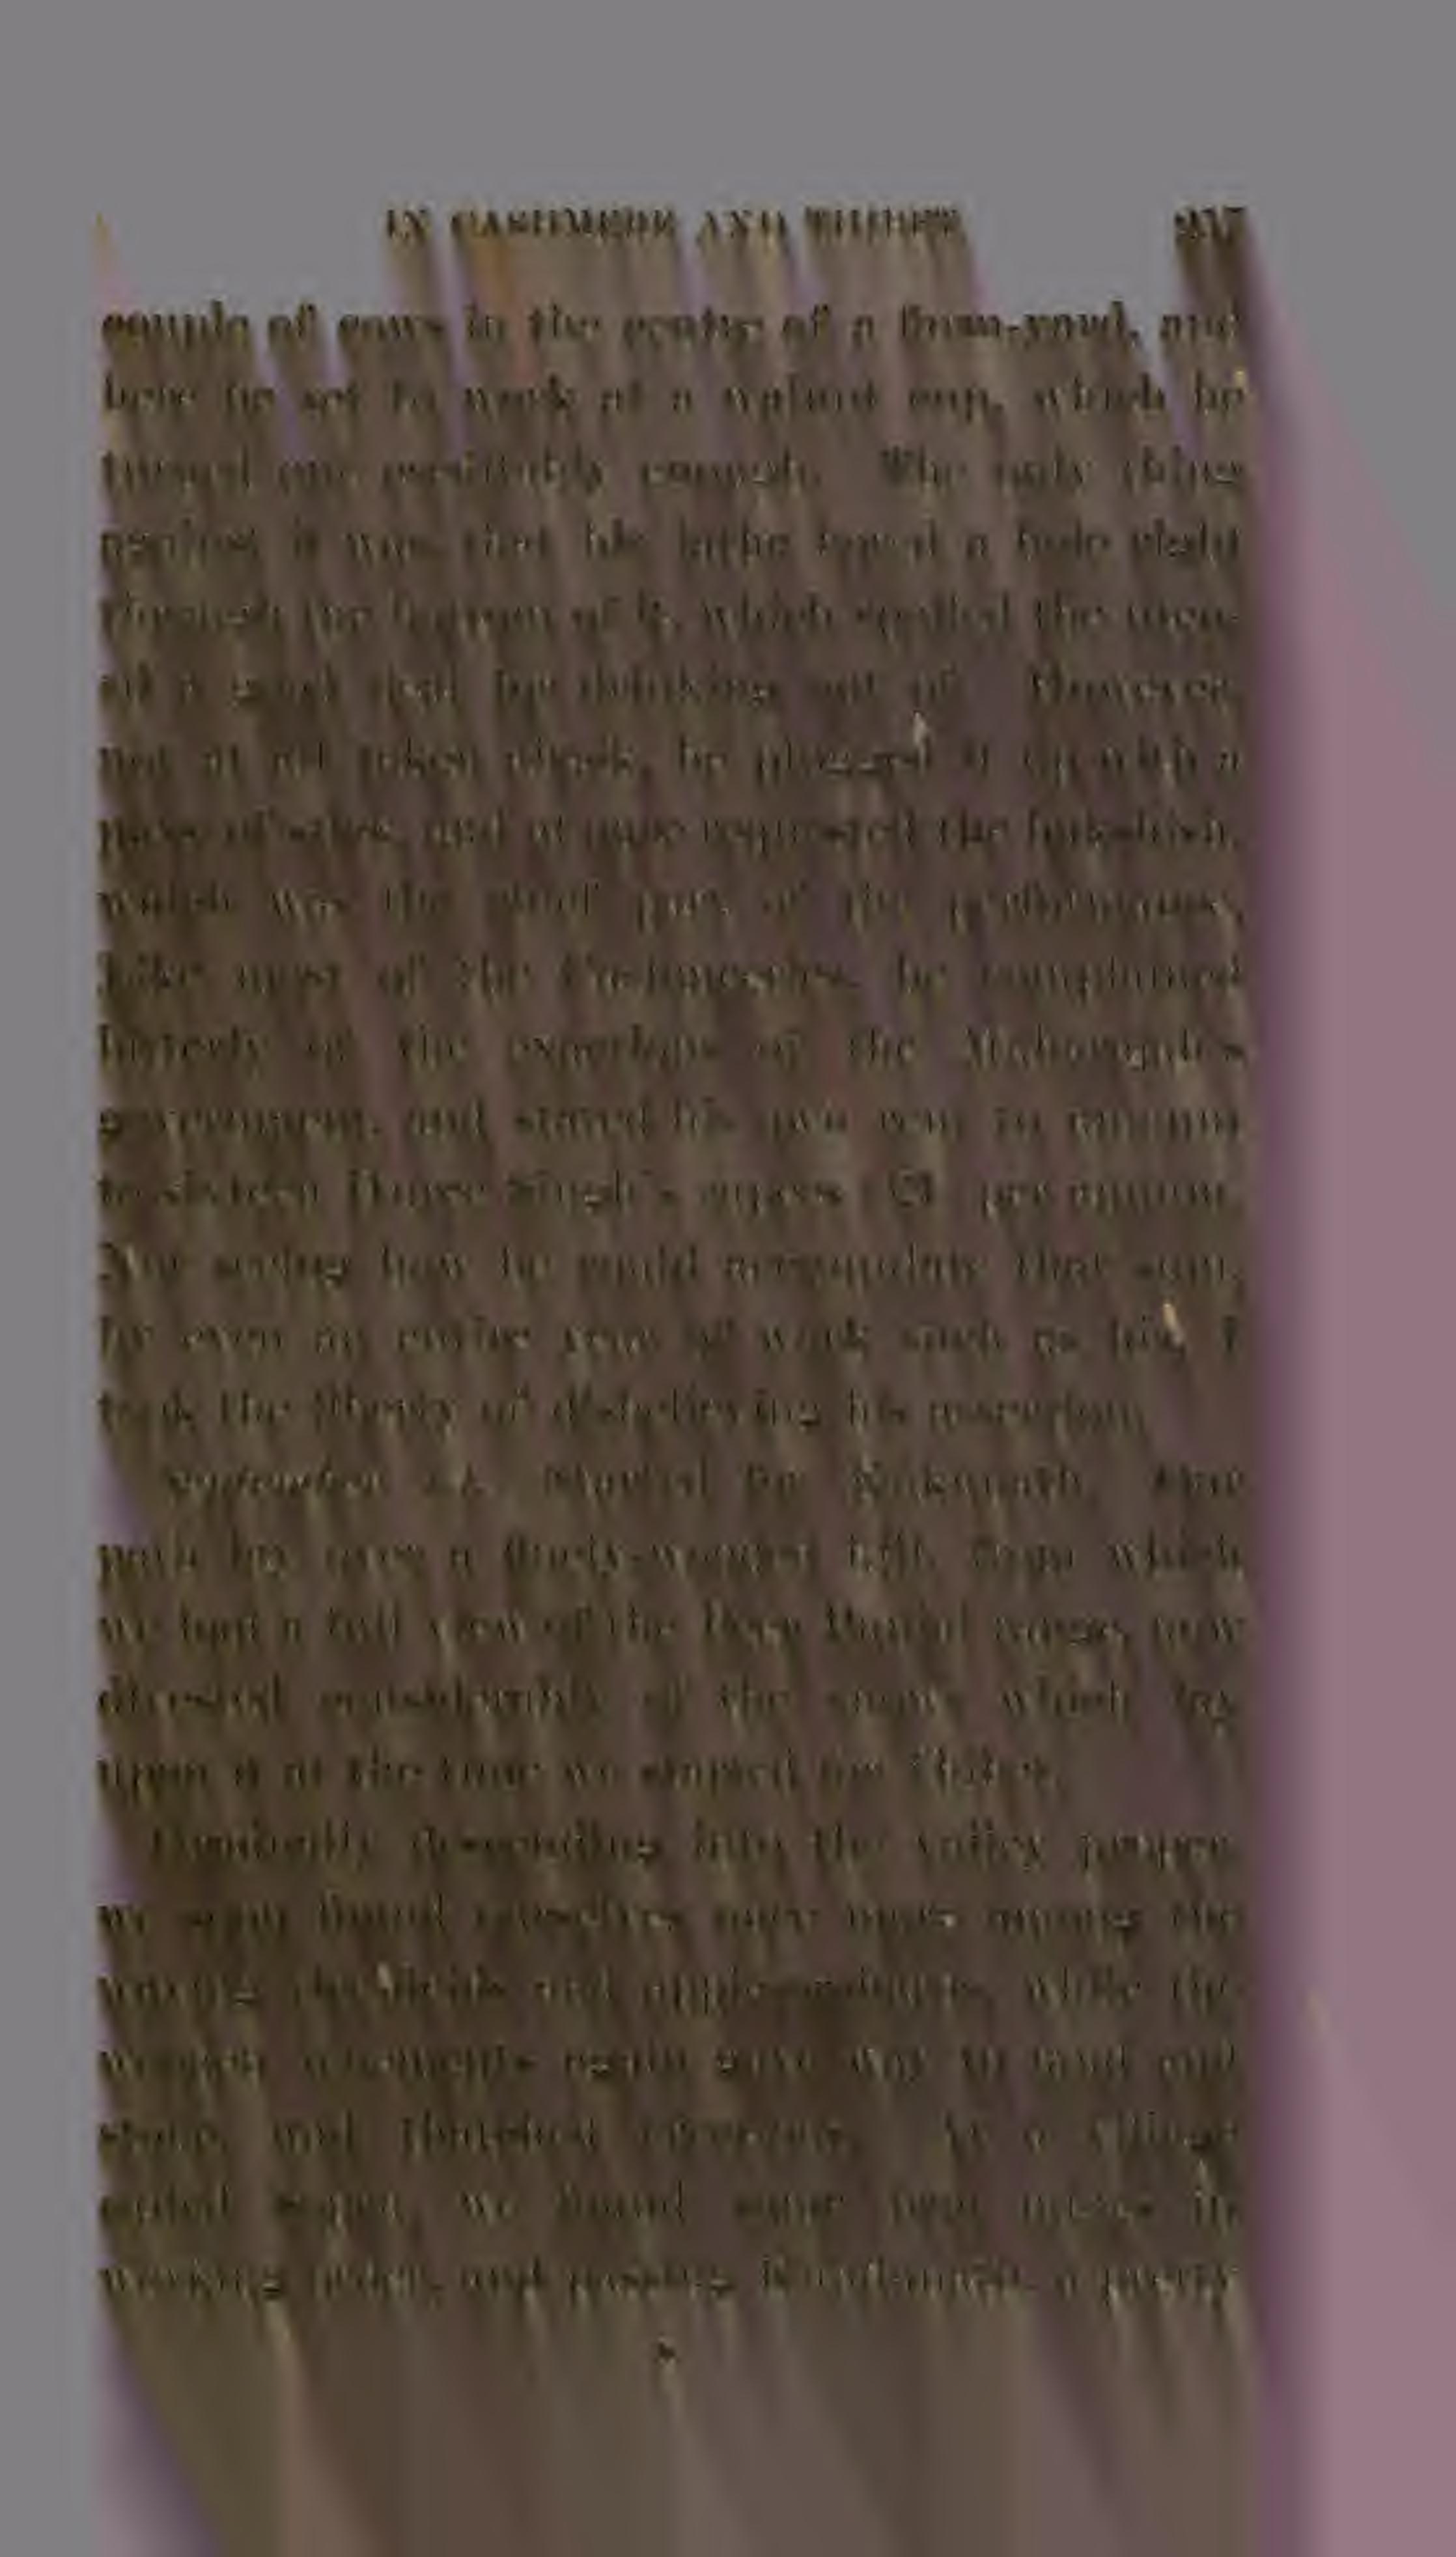 IN CASHMERE AND THIBET. 257
couple of cows in the centre of a farm-yard, and
here he set to work at a walnut cup, which he
turned out creditably enough. The only thing
against it was, that his lathe bored a hole right
through the bottom of it, which spoiled the
of a good deal for drinking out of. However,
not at all taken aback, he plugged it up with a
piece of stick, and at once requested the
which was the chief part of the performance.
Like most of the Cashmeeries, he complained
bitterly of the exactions of the Maharajah's
government, and stated his own rent to amount
to sixteen Singh's rupees per annum.
Not seeing how he could accumulate that sum,
by even an entire year of work such as his, I
took the liberty of disbelieving his assertion.
September Started for Our
path lay over a finely-wooded hill, from which
we had a full view of the Peer Punjal range, now
divested considerably of the snows which lay
upon it at the time we started for Thibet.
Gradually descending into the valley proper,
we soon found ourselves once more among the
waving rice-fields and apple-orchards, while the
wooden again gave way to mud and
stone and thatched At a village
called we found some in
working order, and passing a pretty